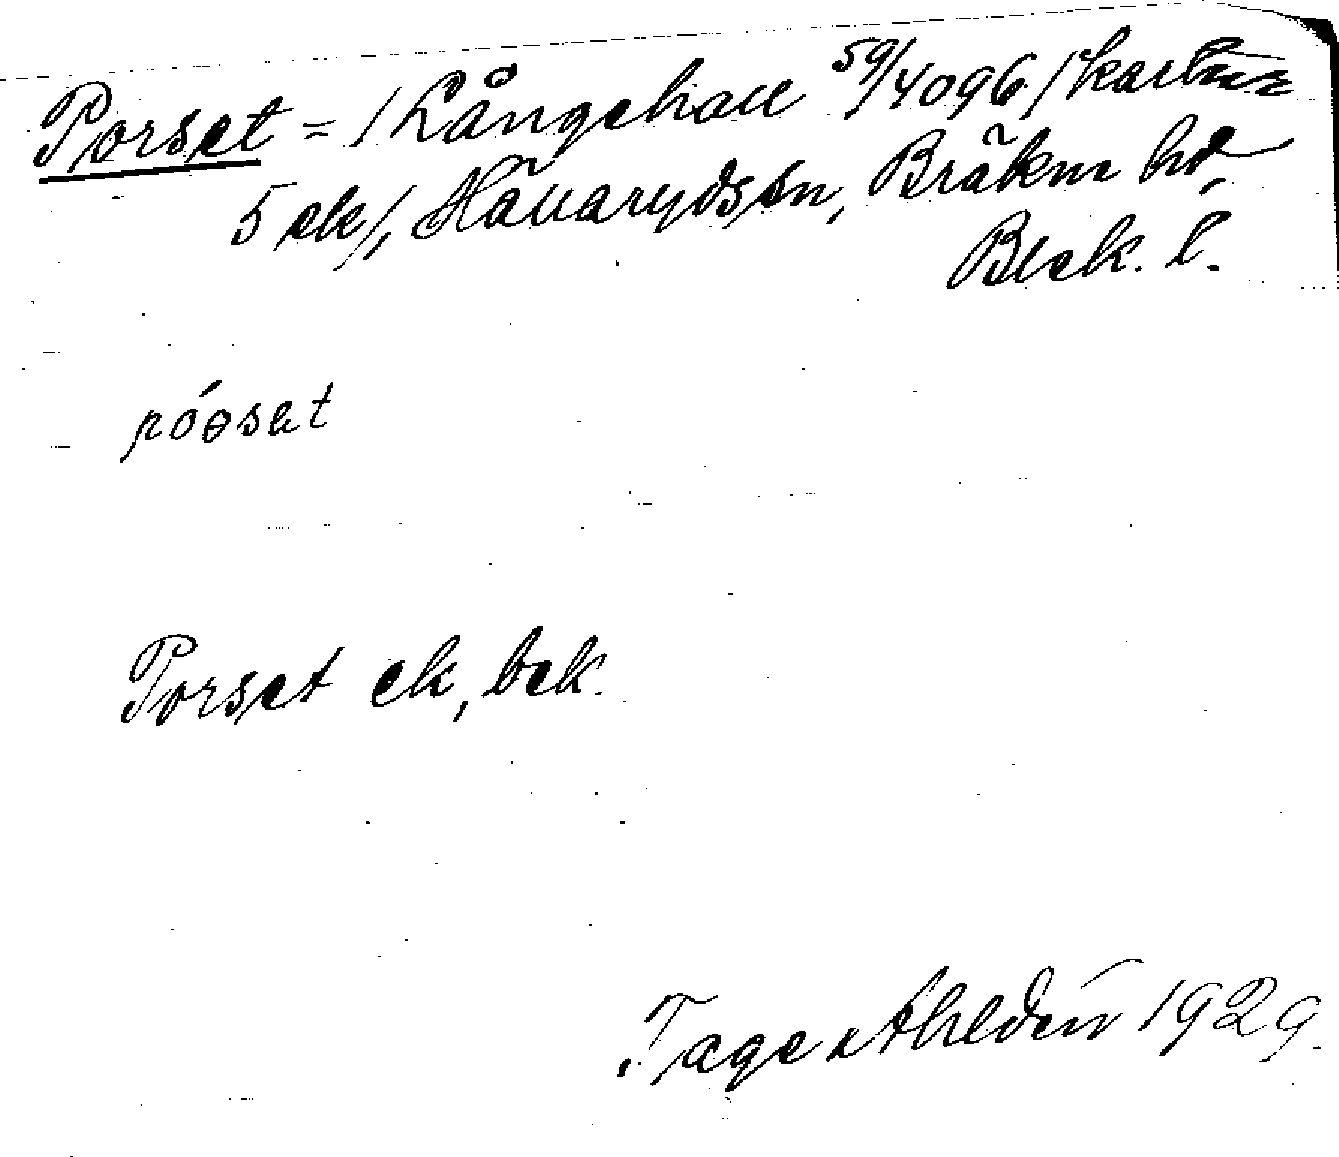 Porset = /Långehall 59/4096/kartan
5 ek/, Hällarydssn, Bräkne hd,
Blek. l.
póɵsat
Porset ek, bek.
Tage Ahldén 1929.